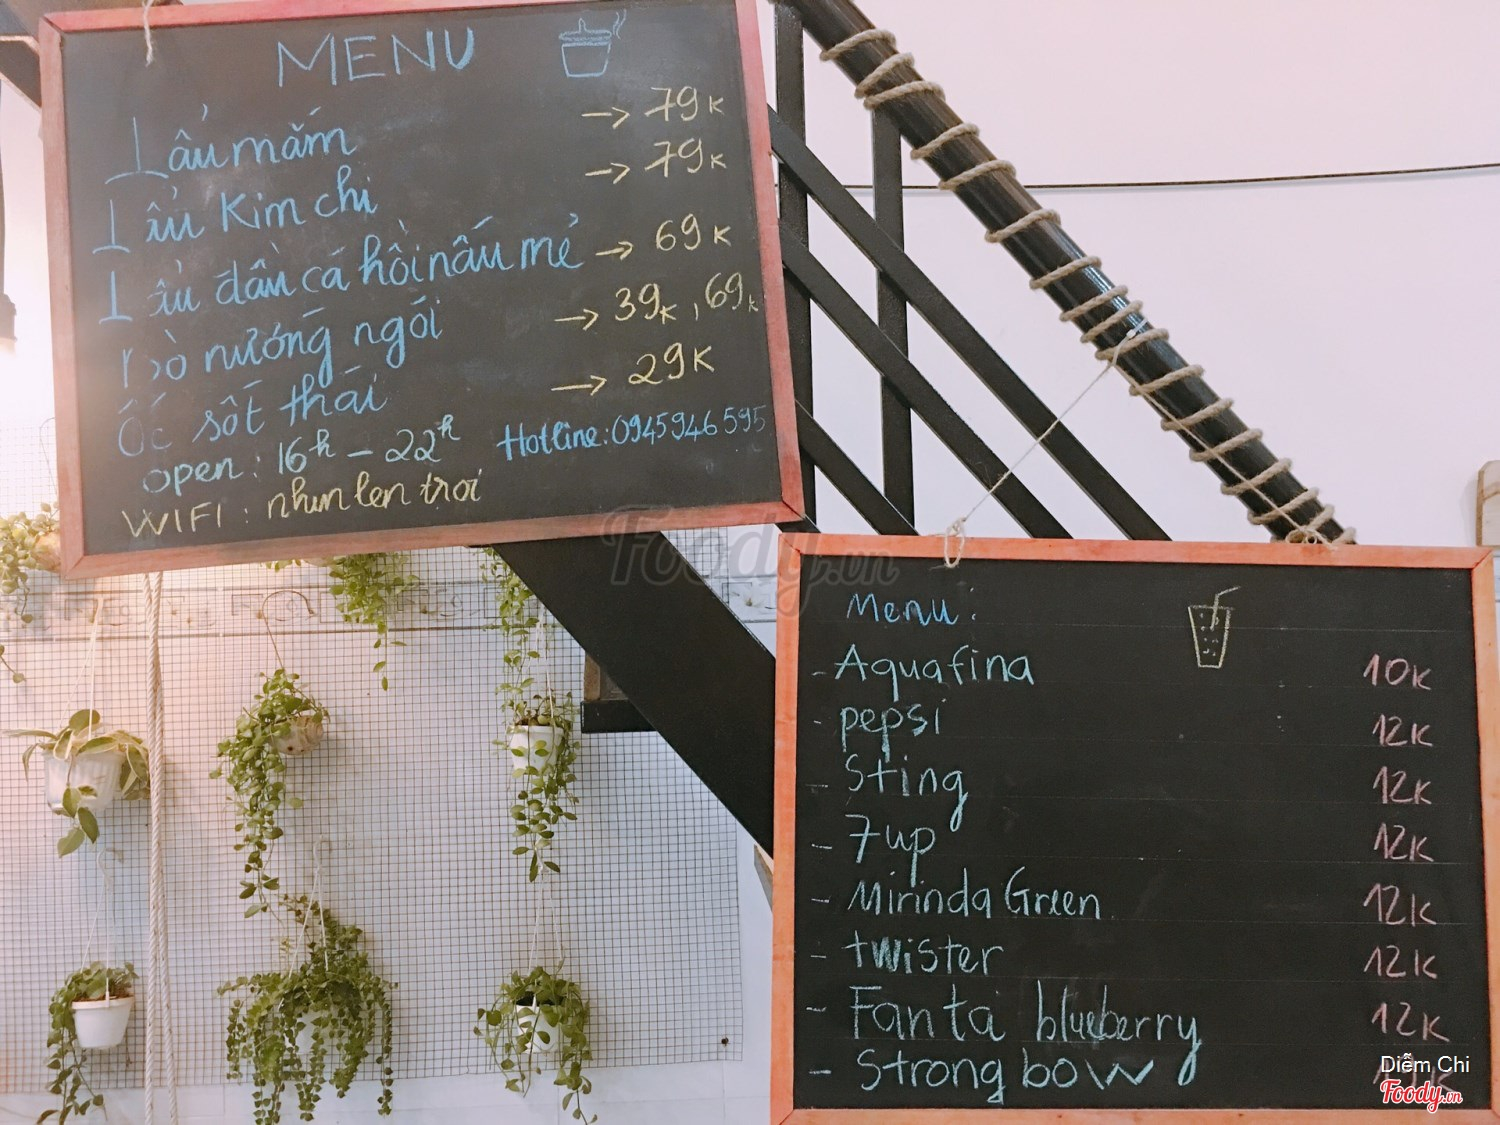 MENU
Lẩu mắm → 79K
Lẩu Kim chi → 79K
Lẩu đầu cá hồi nấu mẻ → 69K
Bò nướng ngói → 39K, 69K
Ốc sốt thái → 29K
open: 16h - 22h Hotline: 0945946595
WIFI: nhun len troi
Foody.vn
Menu:
- Aquafina 10K
- pepsi 12K
- Sting 12K
- 7up 12K
- Mirinda Green 12K
- twister 12K
- Fanta blueberry 12K
- Strongbow
Diễm Chi
Foody.vn